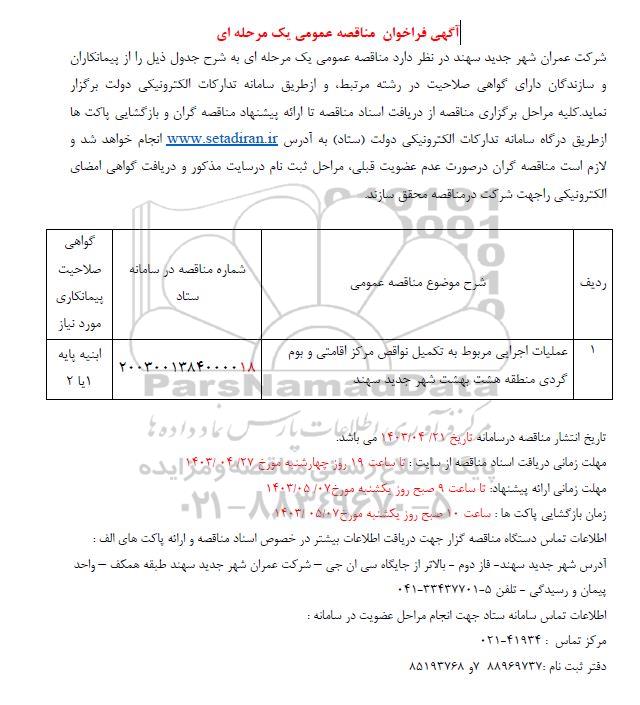 آگهی فراخوان مناقصه عمومی یک مرحله ای
شرکت عمران شهر جدید سهند در نظر دارد مناقصه عمومی یک مرحله ای به شرح جدول ذیل را از پیمانکاران
و سازندگان دارای گواهی صلاحیت در رشته مرتبط، و ازطریق سامانه تدارکات الکترونیکی دولت برگزار
نماید.کلیه مراحل برگزاری مناقصه از دریافت اسناد مناقصه تا ارائه پیشنهاد مناقصه گران و بازگشایی پاکت ها
ازطریق درگاه سامانه تدارکات الکترونیکی دولت (ستاد) به آدرس www.setadiran.ir انجام خواهد شد و
لازم است مناقصه گران درصورت عدم عضویت قبلی، مراحل ثبت نام درسایت مذکور و دریافت گواهی امضای
الکترونیکی راجهت شرکت درمناقصه محقق سازند.
ردیف
شرح موضوع مناقصه عمومی
شماره مناقصه در سامانه
ستاد
گواهی
صلاحیت
پیمانکاری
مورد نیاز
۱
عملیات اجرایی مربوط به تکمیل نواقص مرکز اقامتی و بوم
گردی منطقه هشت بهشت شهر جدید سهند
۲۰۰۳۰۰۱۳۸۴۰۰۰۰۱۸
ابنیه پایه
۱یا ۲
ParsNamadData
مرکز فرآوری اطلاعات پارس نماد داده ها
تاریخ انتشار مناقصه درسامانه تاریخ ۱۴۰۳/۰۴/۲۱ می باشد.
مهلت زمانی دریافت اسناد مناقصه از سایت : تا ساعت ۱۹ روز چهارشنبه مورخ ۱۴۰۳/۰۴/۲۷
مهلت زمانی ارائه پیشنهاد: تا ساعت ۹ صبح روز یکشنبه مورخ۱۴۰۳/۰۵/۰۷
زمان بازگشایی پاکت ها : ساعت ۱۰ صبح روز یکشنبه مورخ۱۴۰۳/۰۵/۰۷
۰۲۱-۸۸۳۴۹۶۷۰-۵
اطلاعات تماس دستگاه مناقصه گزار جهت دریافت اطلاعات بیشتر در خصوص اسناد مناقصه و ارائه پاکت های الف :
آدرس شهر جدید سهند- فاز دوم - بالاتر از جایگاه سی ان جی – شرکت عمران شهر جدید سهند طبقه همکف – واحد
پیمان و رسیدگی - تلفن ۵-۳۳۴۳۷۷۰۱-۰۴۱
اطلاعات تماس سامانه ستاد جهت انجام مراحل عضویت در سامانه :
مرکز تماس : ۴۱۹۳۴-۰۲۱
دفتر ثبت نام :۸۸۹۶۹۷۳۷ ۷و ۸۵۱۹۳۷۶۸